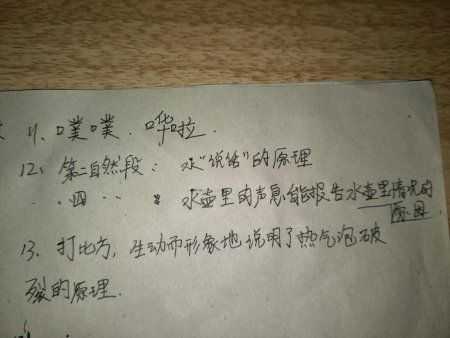 11、噗噗、哗啦.
12、第二自然段：水"说话"的原理
〃四〃〃〃 水壶里的声息能报告水壶里情况的
原因.
13、打比方，生动而形象地说明了热气泡破
裂的原理.